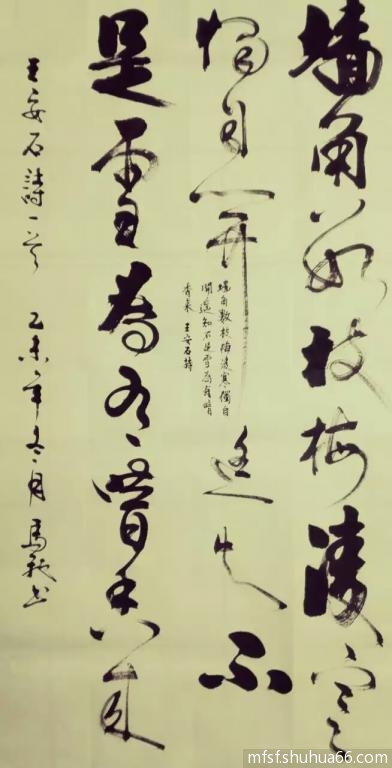 墙角数枝梅凌寒
獨自開遥知不
是雪為有暗香来
墙角数枝梅凌寒獨自
開遥知不是雪為有暗
香来 王安石詩
王安石詩一首 乙未年冬月 馬 书
mfsf.shuhua66.com